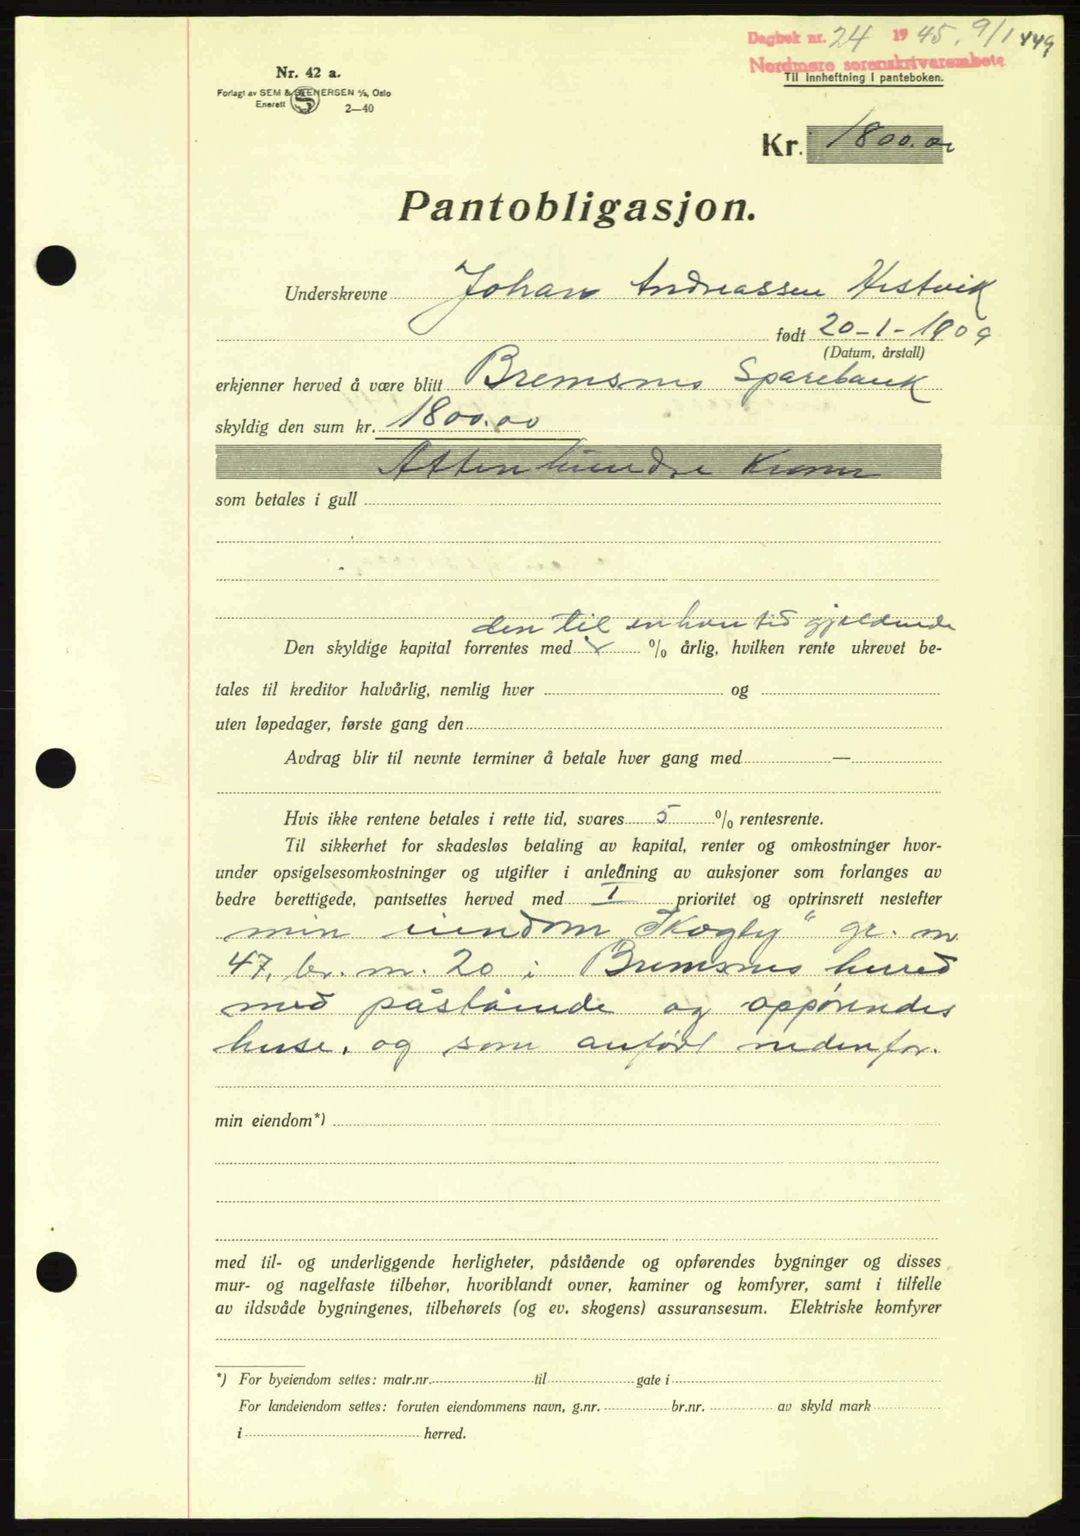 Dagbok nr. 24 1945, 9/1 449
Nordmøre sorenskrivarembete
Nr. 42 a.
Til innheftning i panteboken.
Forlagt av SEM & STENERSEN A/S, Oslo
Enerett S 2—40
Kr. 1800.00
Pantobligasjon.
Underskrevne Johan Andreassen Hestvik
født 20-1-1909
(Datum, årstall)
erkjenner herved å være blitt Bremsnes Sparebank
skyldig den sum kr. 1800.00
Attenhundre Kroner
som betales i gull
den til enhver tid gjeldende
Den skyldige kapital forrentes med % årlig, hvilken rente ukrevet be-
tales til kreditor halvårlig, nemlig hver og
uten løpedager, første gang den
Avdrag blir til nevnte terminer å betale hver gang med —
Hvis ikke rentene betales i rette tid, svares 5 % rentesrente.
Til sikkerhet for skadesløs betaling av kapital, renter og omkostninger hvor-
under opsigelsesomkostninger og utgifter i anledning av auksjoner som forlanges av
bedre berettigede, pantsettes herved med I prioritet og optrinsrett nestefter
min eiendom „Skogly“ gr. nr.
47, br. nr. 20 i Bremsnes herred
med påstående og oppørendes
huse, og som anført nedenfor.
min eiendom*)
med til- og underliggende herligheter, påstående og opførendes bygninger og disses
mur- og nagelfaste tilbehør, hvoriblandt ovner, kaminer og komfyrer, samt i tilfelle
av ildsvåde bygningenes, tilbehørets (og ev. skogens) assuransesum. Elektriske komfyrer
*) For byeiendom settes: matr.nr. til gate i
For landeiendom settes: foruten eiendommens navn, g.nr. br.nr. av skyld mark
i herred.